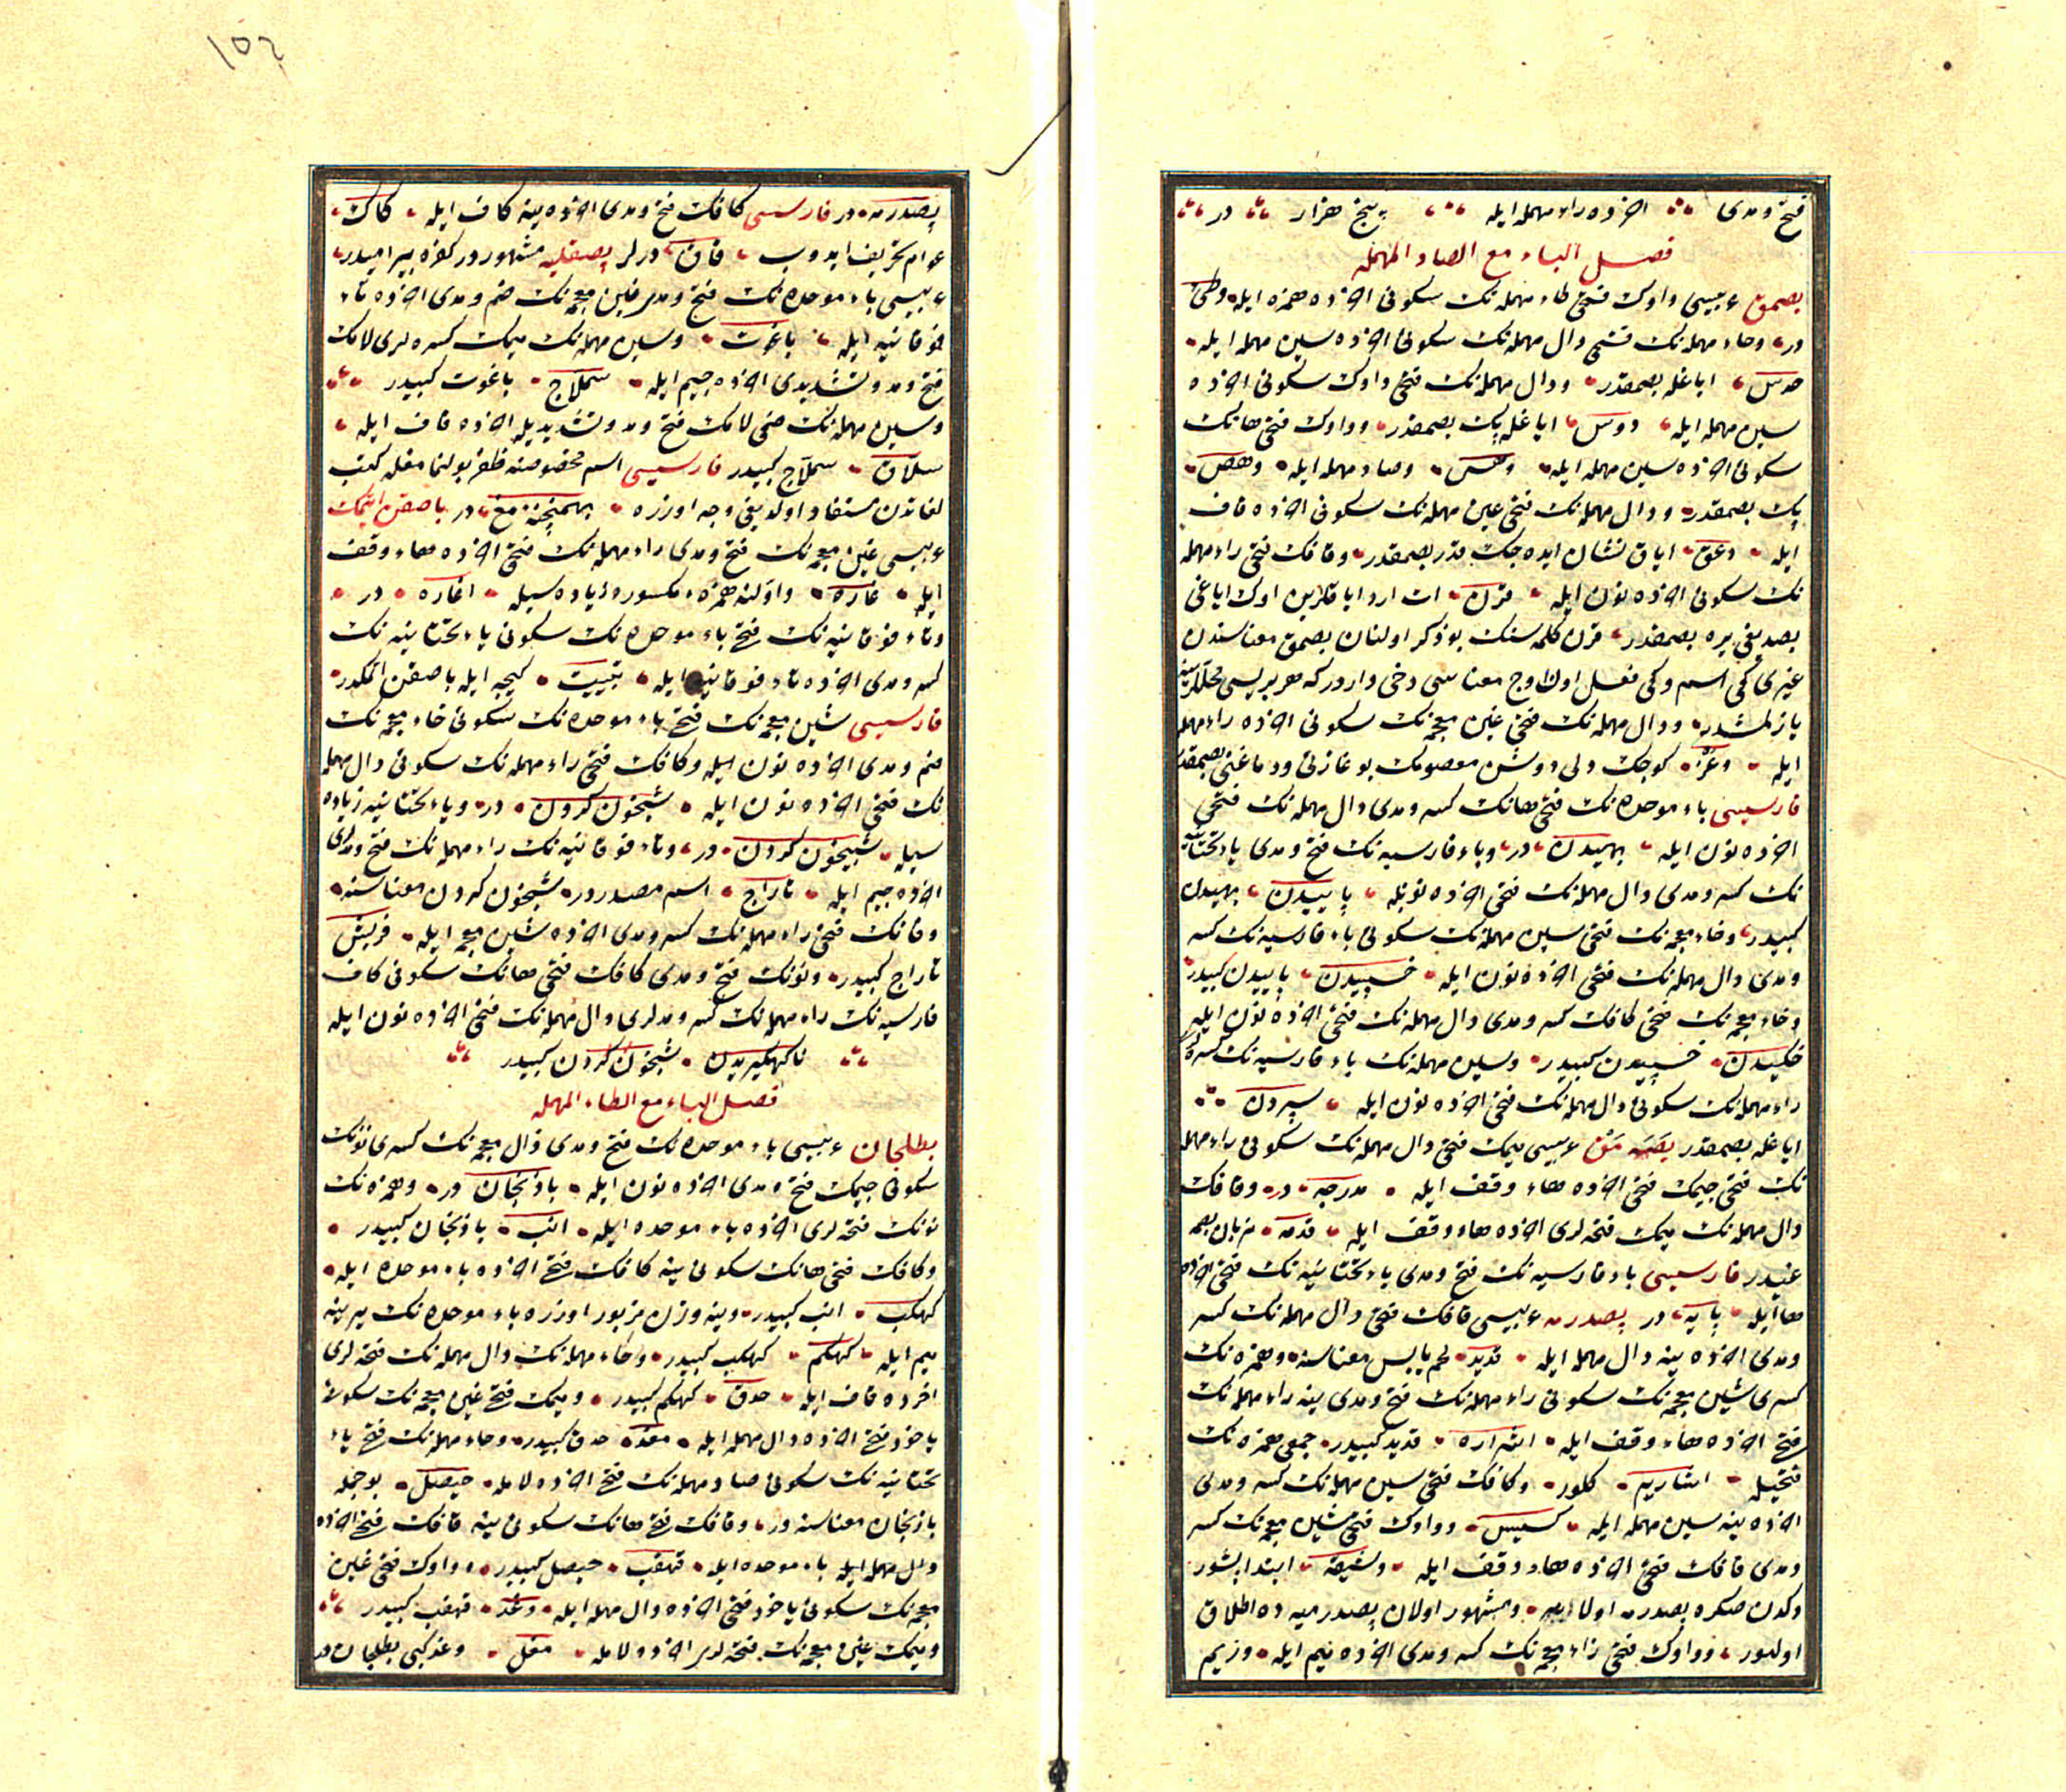 فتح و مدی اخرده راء مهمله ایله پنج هزار در
فصل الباء مع الصاد المهمله
بصمق عربیسی واوك فتحی طاء مهمله نك سكونی اخرده همزه ایله وطئ
در وحاء مهمله نك فتحی دال مهمله نك سكونی اخرده سین مهمله ایله
حدس ایاغله بصمقدر ودال مهمله نك فتحی واوك سكونی اخرده
سین مهمله ایله دوس ایاغله پك بصمقدر وواوك فتحی هانك
سكونی اخرده سین مهمله ایله وهس وصاد مهمله ایله وهص
پك بصمقدر ودال مهمله نك فتحی عین مهمله نك سكونی اخرده قاف
ایله دعق ایاق نشان ایده جك قدر بصمقدر وقافك فتحی راء مهمله
نك سكونی اخرده نون ایله قرن ات ارد ایاقلرین اوك ایاغی
بصدیغی یره بصمقدر قرن كلمه سنك بو ذكر اولنان بصمق معناسندن
غیری كمی اسم وكمی فعل اون اوچ معناسی دخی واردر كه هر بریسی محللرینه
یازلمشدر ودال مهمله نك فتحی غین معجمه نك سكونی اخرده راء مهمله
ایله دغر كوچك دلی دوشن معصومك بوغازنی ودماغنی بصمقدر
فارسیسی باء موحده نك فتحی هانك كسر و مدی دال مهمله نك فتحی
اخرده نون ایله بهیدن در وباء فارسیه نك فتح و مدی یاء تحتانیه
نك كسر و مدی دال مهمله نك فتحی اخرده نونله پاییدن بهیدن
كبیدر وخاء معجمه نك فتحی سین مهمله نك سكونی باء فارسیه نك كسر
و مدی دال مهمله نك فتحی اخرده نون ایله خسپیدن پاییدن كبیدر
وخاء معجمه نك ضمی كافك كسر و مدی دال مهمله نك فتحی اخرده نون ایله
خكیدن خسپیدن كبیدر وسین مهمله نك باء فارسیه نك كسره لری
راء مهمله نك سكونی دال مهمله نك فتحی اخرده نون ایله سپردن
ایاغله بصمقدر بصمه مق عربیسی میمك فتحی دال مهمله نك سكونی راء مهمله
نك فتحی جیمك فتحی اخرده هاء وقف ایله مدرجه در وقافك
دال مهمله نك میمك فتحه لری اخرده هاء وقف ایله قدمه نربان بصمه
غیدر فارسیسی باء فارسیه نك فتح و مدی یاء تحتانیه نك فتحی اخرده
ها ایله پایه در پصدرمه عربیسی قافك فتحی دال مهمله نك كسر
و مدی اخرده ینه دال مهمله ایله قدید لحم یابس معناسنه وهمزه نك
كسری شین معجمه نك سكونی راء مهمله نك فتح و مدی ینه راء مهمله نك
فتحی اخرده هاء وقف ایله اشراره قدید كبیدر جمعی همزه نك
فتحیله اشاریر كلور وكافك فتحی سین مهمله نك كسر و مدی
اخرده ینه سین مهمله ایله كسیس وواوك فتحی شین معجمه نك كسر
و مدی قافك فتحی اخرده هاء وقف ایله وشیقه ابتدا بشور
وكدن صكره بصدرمه اولا ومشهور اولان پصدرمیه ده اطلاق
اولنور وواوك فتحی زاء معجمه نك كسر و مدی اخرده میم ایله وزیم
١٥٢
پصدرمه در فارسیسی كافك فتح و مدی اخرده ینه كاف ایله كاك
عوام تحریف ایدوب قاق درلر پصقلیه مشهوردر كفره بیرامیدر
عربیسی باء موحده نك فتح و مدی غین معجمه نك ضم و مدی اخرده ثاء
فوقانیه ایله باغوت وسین مهمله نك میمك كسره لری لامك
فتح و مد و تشدیدی اخرده جیم ایله سملاج باغوت كبیدر
وسین مهمله نك ضمی لامك فتح و مد و تشدیدیله اخرده قاف ایله
سلاق سملاج كبیدر فارسیسی اسم مخصوصنه ظفر بولنمامغله كتب
لغاتدن مستفاد اولدیغی وجه اوزره در باصقن ایتمك
عربیسی غین معجمه نك فتح و مدی راء مهمله نك فتحی اخرده هاء وقف
ایله غاره واولنه همزه مكسوره زیاده سیله اغاره در
وتاء فوقانیه نك فتحی باء موحده نك سكونی یاء تحتانیه نك
كسر و مدی اخرده تاء فوقانیه ایله تبییت كیجه ایله باصقن اتمكدر
فارسیسی شین معجمه نك فتحی باء موحده نك سكونی خاء معجمه نك
ضم و مدی اخرده نون ایله وكافك فتحی راء مهمله نك سكونی دال مهمله
نك فتحی اخرده نون ایله شبخون كردن در ویاء تحتانیه زیاده
سیله شبیخون كردن در وتاء فوقانیه نك راء مهمله نك فتح و مدلری
اخرده جیم ایله تاراج اسم مصدردر شبخون كردن معناسنه
وفانك فتحی راء مهمله نك كسر و مدی اخرده شین معجمه ایله فریش
تاراج كبیدر ونونك فتح و مدی كافك فتحی هانك سكونی كاف
فارسیه نك راء مهمله نك كسر و مدلری دال مهمله نك فتحی اخرده نون ایله
ناكهكیریدن شبخون كردن كبیدر
فصل الباء مع الطاء المهمله
بطلجان عربیسی باء موحده نك فتح و مدی ذال معجمه نك كسری نونك
سكونی جیمك فتح و مدی اخرده نون ایله باذنجان در وهمزه نك
نونك فتحه لری اخرده باء موحده ایله انب باذنجان كبیدر
وكافك فتحی هانك سكونی ینه كافك فتحی اخرده باء موحده ایله
كهكب انب كبیدر وینه وزن مزبور اوزره باء موحده نك یرینه
میم ایله كهكم كهكب كبیدر وحاء مهمله نك دال مهمله نك فتحه لری
اخرده قاف ایله حدق كهكم كبیدر ومیمك فتحی غین معجمه نك سكونی
یاخود فتحی اخرده دال مهمله ایله مغد حدق كبیدر وحاء مهمله نك فتحی یاء
تحتانیه نك سكونی صاد مهمله نك فتحی اخرده لامله حیصل بو جمله
باذنجان معناسنه در وقافك فتحی هانك سكونی ینه قافك فتحی اخرده
باء موحده ایله قهقب حیصل كبیدر وواوك فتحی غین
معجمه نك سكونی یاخود فتحی اخرده دال مهمله ایله وغد قهقب كبیدر
ومیمك غین معجمه نك فتحه لری اخرده لامله مغل وغد كبی بطلجان در